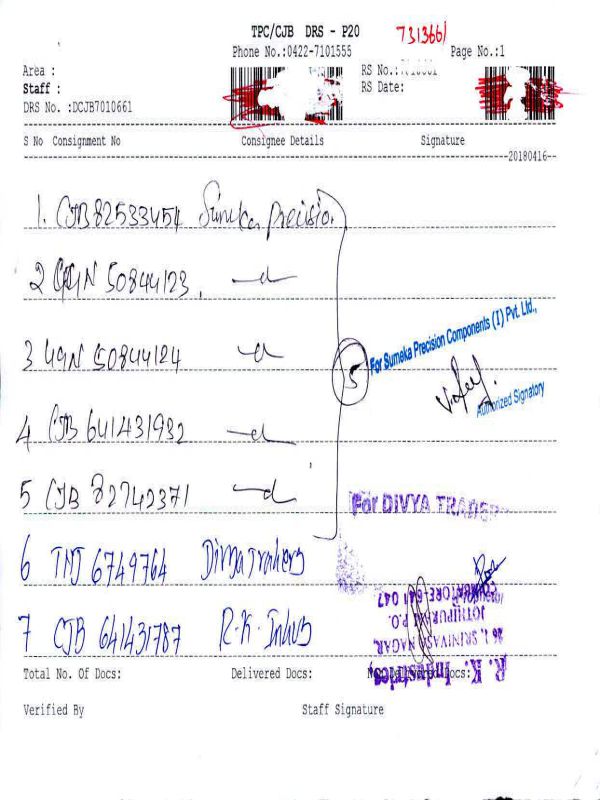 TPC/CJB DRS - P20
731366/
Phone No.:0422-7101555
Page No.:1
Area :
RS No.:
Staff :
RS Date:
DRS No. :DCJB7010661
S No Consignment No Consignee Details Signature
20180416
1. CJB 82533454 Sumeka Precision
2 GGN 50844123
3 GGN 50844124
5
For Sumeka Precision Components (I) Pvt. Ltd.,
Authorized Signatory
4 CJB 641431932
5 CJB 82742371
For DIVYA TRADERS
6 TNJ 6749764 Divya Traders
7 CJB 641431787 R.K. Indus
R. K. Industries,
26 I, SRINIVASA NAGAR,
JOTHIPURAM P.O.
COIMBATORE-641 047
Total No. Of Docs: Delivered Docs: Not Delivered Docs:
Verified By Staff Signature